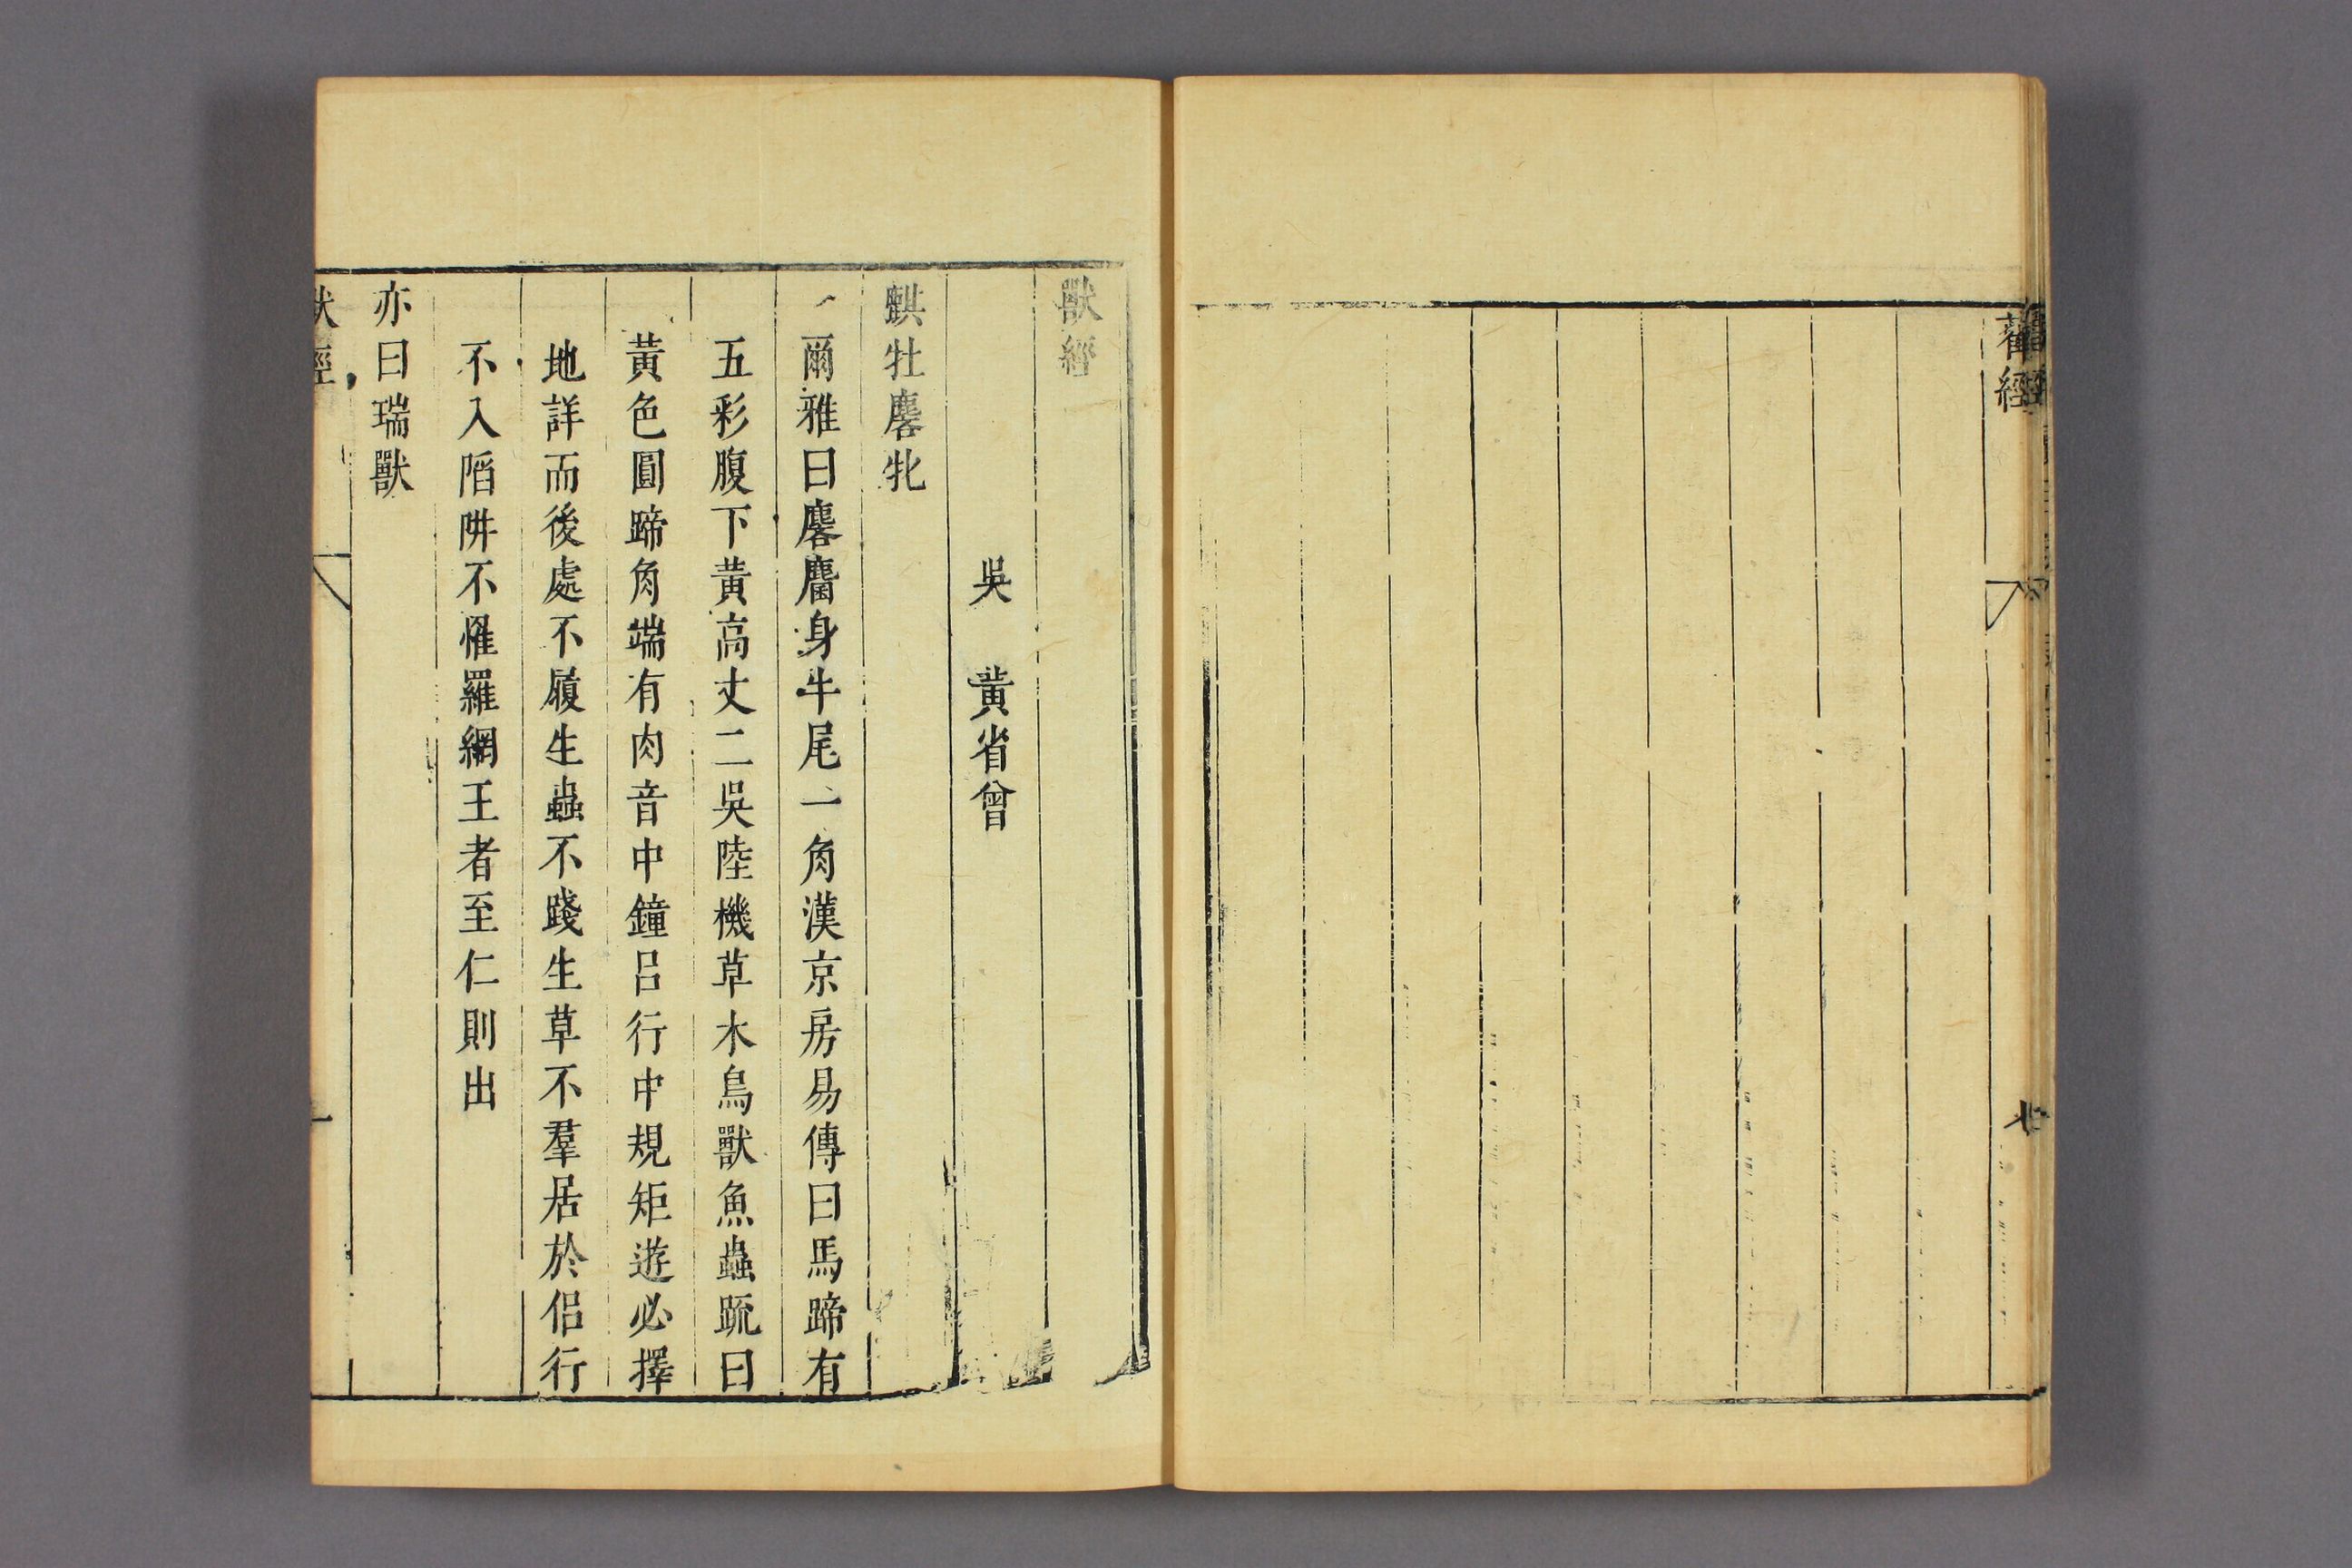 經
七
獸經
吳　黃省曾
麒牡麐牝
爾雅曰麐麕身牛尾一角漢京房易傳曰馬蹄有
五彩腹下黃高丈二吳陸機草木鳥獸魚蟲疏曰
黃色圓蹄角端有肉音中鐘呂行中規矩遊必擇
地詳而後處不履生蟲不踐生草不羣居於侶行
不入陷阱不罹羅網王者至仁則出
亦曰瑞獸
獸經
一